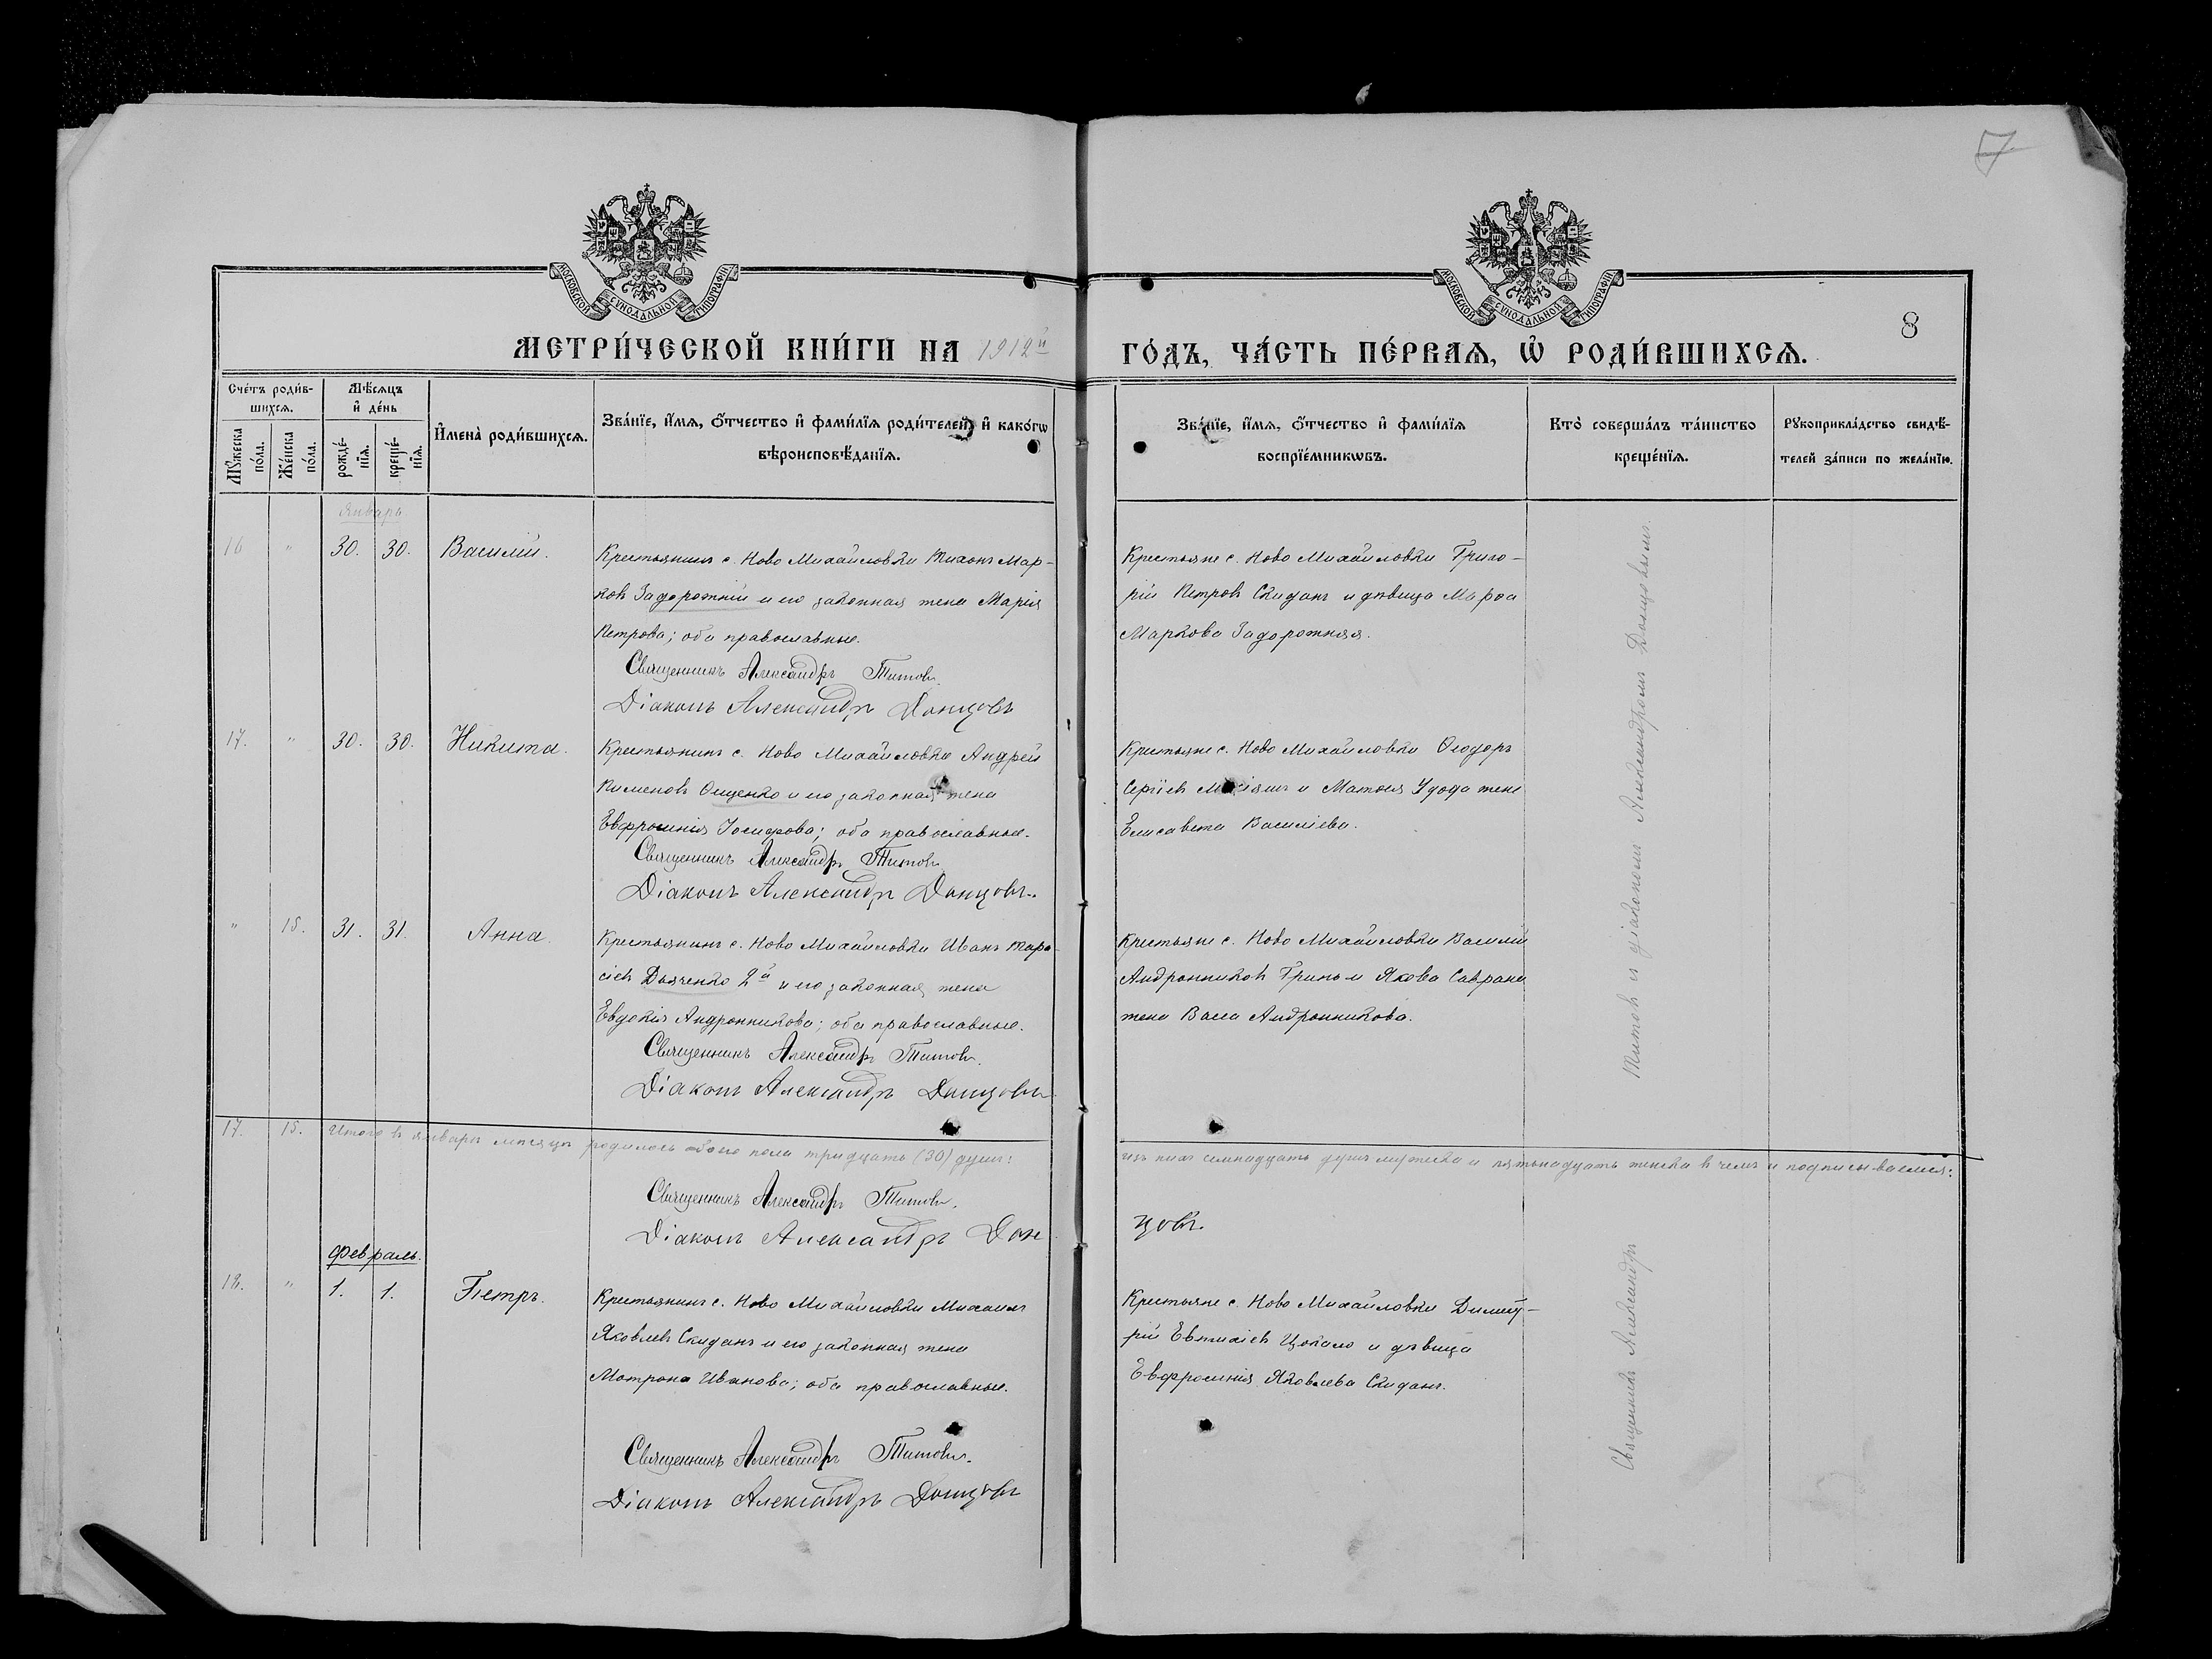 7
МОСКОВСКОЙ СѴНОДАЛЬНОЙ ТИПОГРАФІИ
МОСКОВСКОЙ СѴНОДАЛЬНОЙ ТИПОГРАФІИ
8
МЕТРИ́ЧЕСКОЙ КНИ́ГИ НА 1912й
ГО́ДЪ, ЧА́СТЬ ПЕ́РВАЯ, Ѡ РОДИ́ВШИХСЯ.
Сче́тъ роди́в-
шихся.
Мѣ́сяцъ
и҆ де́нь
Мꙋ́жеска
по́ла.
Же́нска
по́ла.
рожде́-
нїя.
креще́-
нїя.
И҆мена̀ роди́вшихся.
Зва́нїе, и҆́мя, ѻ҆́тчество и҆ фами́лїя роди́телей, и҆ како́гѡ
вѣроисповѣ́данїя.
Зва́нїе, и҆́мя, ѻ҆́тчество и҆ фами́лїя
воспрїе́мникѡвъ.
Кто̀ соверша́лъ та́инство
креще́нїя.
Рꙋкоприкла́дство свидѣ́-
телей за́писи по жела́нїю.
Январь
16 " 30. 30. Василій.
Крестьянинъ с. Ново Михайловки Тихонъ Мар-
ковъ Задорожній и его законная жена Марія
Петрова; оба православные.
Священникъ Александръ Титовъ.
Діаконъ Александръ Донцовъ
Крестьяне с. Ново Михайловки Григо-
рій Петровъ Скиданъ и дѣвица Марѳа
Маркова Задорожняя.
17. " 30. 30. Никита.
Крестьянинъ с. Ново Михайловки Андрей
Пименовъ Ощенко и его законная жена
Евфросинія Іосифова; оба православные.
Священникъ Александръ Титовъ
Діаконъ Александръ Донцовъ.
Крестьяне с. Ново Михайловки Ѳеодоръ
Сергіевъ и Матѳея Удода жена
Елисавета Василіева.
" 15. 31. 31. Анна.
Крестьянинъ с. Ново Михайловки Иванъ Тара-
сіевъ Дьяченко 2й и его законная жена
Евдокія Андронникова; оба православные.
Священникъ Александръ Титовъ.
Діаконъ Александръ Донцовъ
Крестьяне с. Ново Михайловки Василій
Андронниковъ Гринь и Якова Саврана
жена Васса Андронникова.
17. 15. Итого въ январѣ мѣсяцѣ родилось обоего пола тридцать (30) душъ:
изъ нихъ семнадцать душъ мужеска и пятьнадцать женска въ чемъ и подписываемся:
Священникъ Александръ Титовъ.
Діаконъ Александръ Дон
цовъ.
Февраль.
18. " 1. 1. Петръ.
Крестьянинъ с. Ново Михайловки Михаилъ
Яковлевъ Скиданъ и его законная жена
Матрона Иванова; оба православные.
Священникъ Александръ Титовъ.
Діаконъ Александръ Донцовъ
Крестьяне с. Ново Михайловки Димит-
рій Евтихіевъ Цокало и дѣвица
Евфросинія Яковлева Скиданъ.
Священникъ Александръ
Титовъ съ діакономъ Александромъ Донцовымъ.